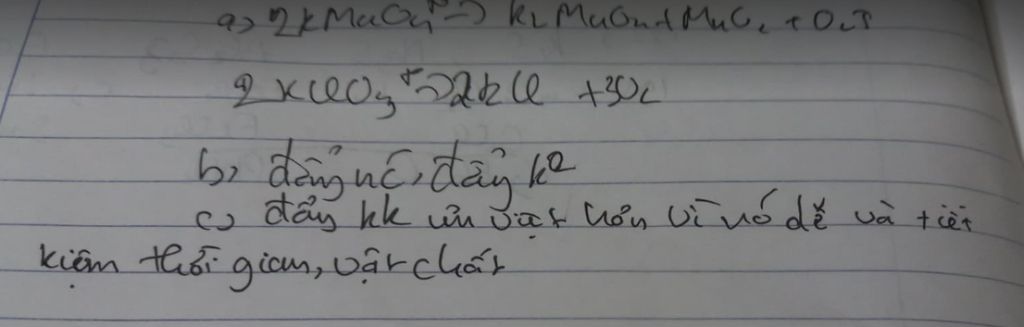 a) 2KMnO₄ → K₂MnO₄ + MnO₂ + O₂↑
2KClO₃ → 2KCl + 3O₂
b, đẩy nc, đẩy k²
c) đẩy kk ưu việt hơn vì nó dễ và tiết
kiệm thời gian, vật chất